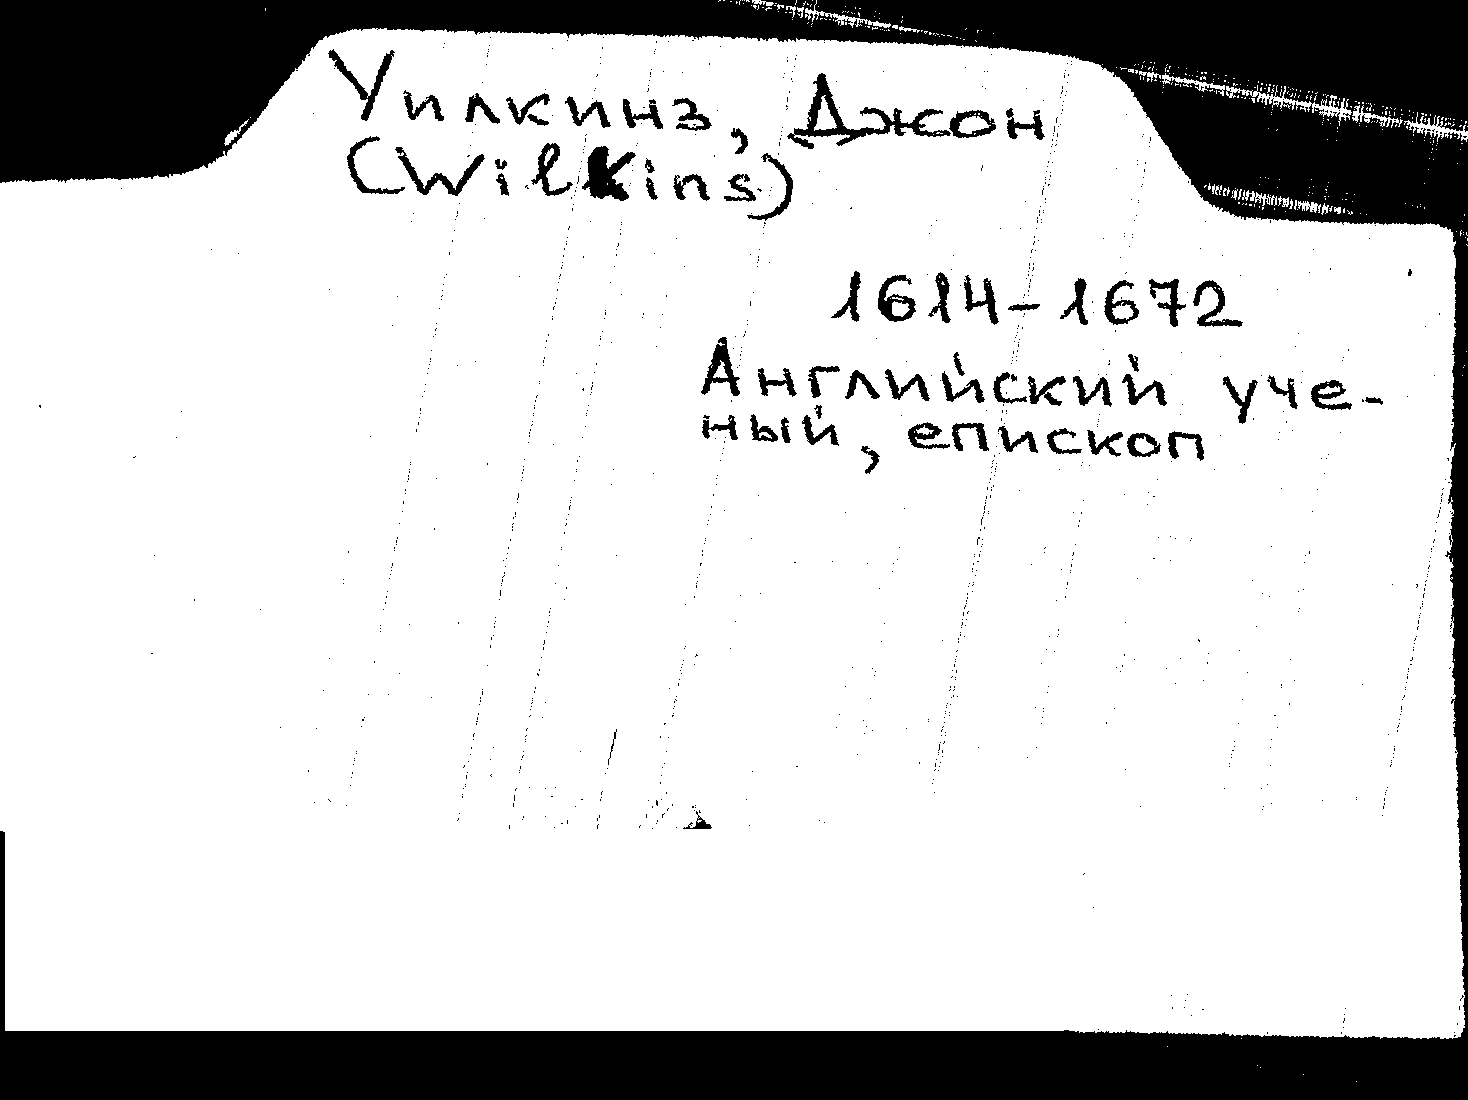 Уилкинз, Джон
(Wilkins)
1614-1672
Английский уче-
ный, епископ